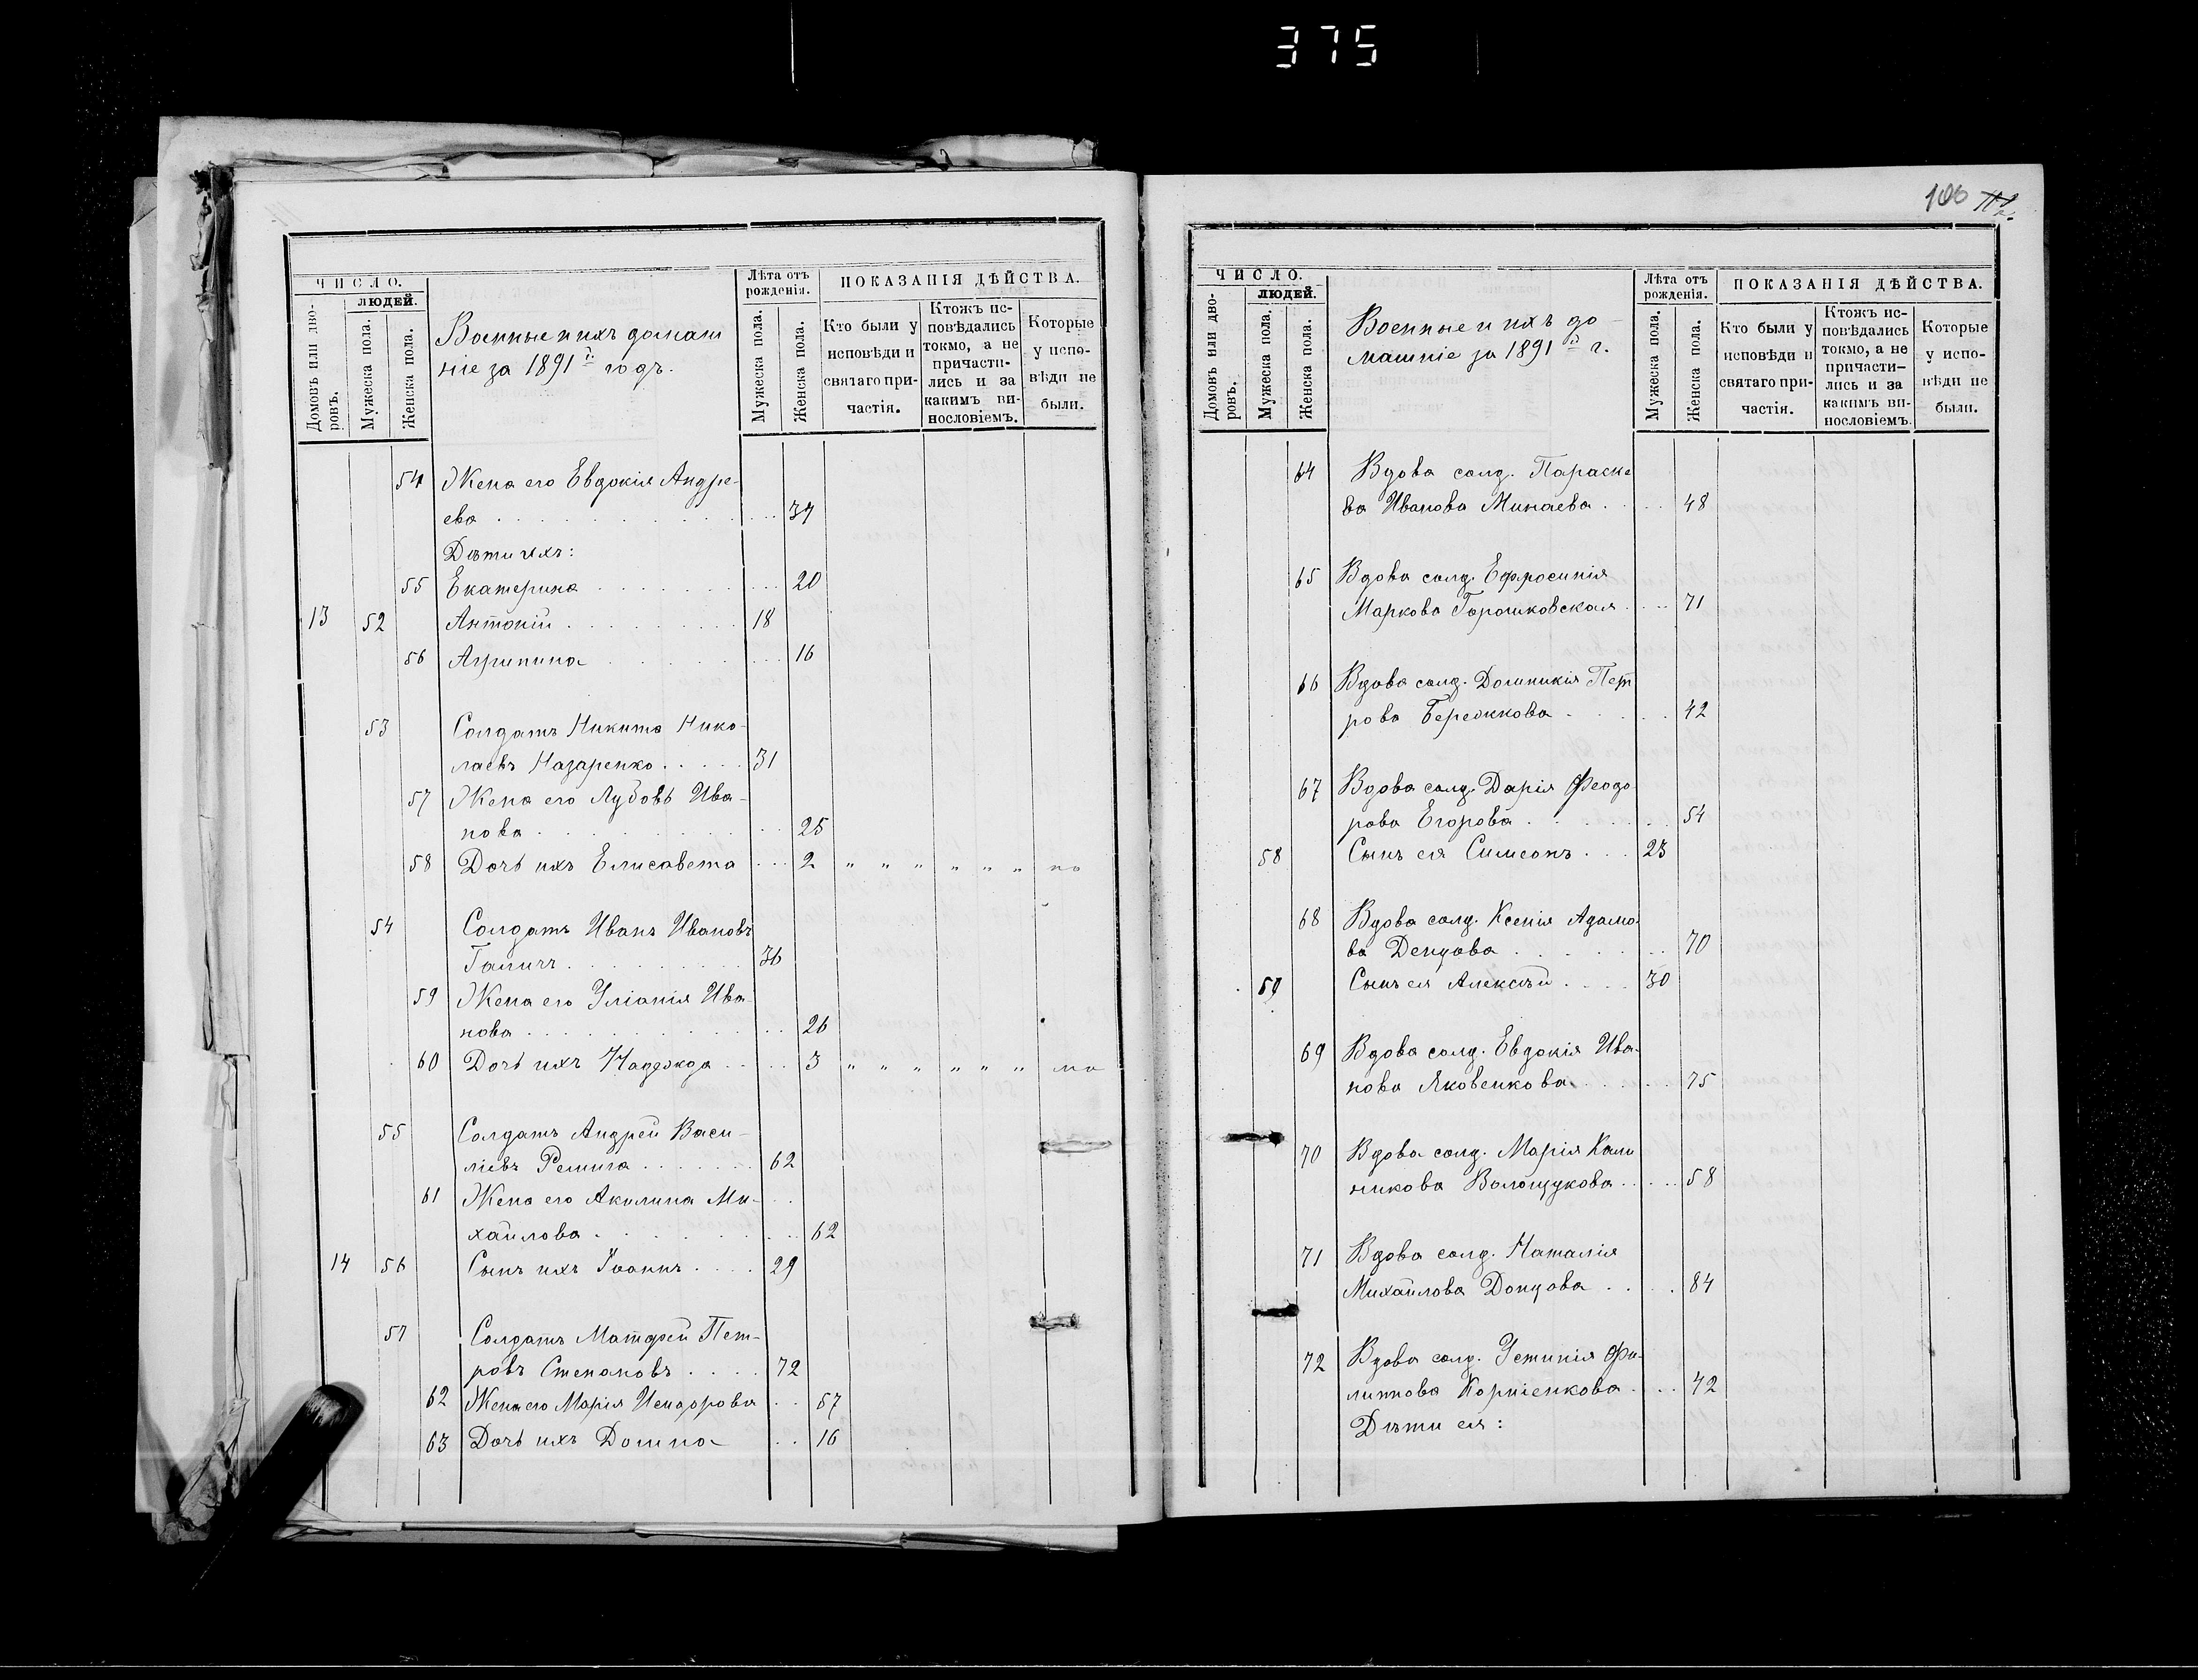 375
106
ЧИСЛО.
Домовъ или дворовъ.
людей.
Мужеска пола.
Женска пола.
Военные и ихъ домаш
ніе за 1891й годъ.
Лѣта отъ
рожденія.
Мужеска пола.
Женска пола.
ПОКАЗАНІЯ ДѢЙСТВА.
Кто были у
исповѣди и
святаго при-
частія.
Ктожъ ис-
повѣдались
токмо, а не
причасти-
лись и за
какимъ ви-
нословіемъ.
Которые
у испо-
вѣди не
были.
54 Жена его Евдокія Андре-
ева 37
Дѣти ихъ:
55 Екатерина 20
13 52 Антоній 18
56 Агрипина 16
53 Солдатъ Никита Нико-
лаевъ Назаренко 31
57 Жена его Лубовь Ива-
нова 25
58 Дочь ихъ Елисавета 2 " " " " " "
54 Солдатъ Иванъ Ивановъ
36
59 Жена его Уліанія Ива-
нова 26
60 Дочь ихъ Надежда 3 " " " " " "
55 Солдатъ Андрей Васи-
ліевъ 62
61 Жена его Акилина Ми-
хайлова 62
14 56 Сынъ ихъ Іоаннъ 29
57 Солдатъ Матфей Пет-
ровъ Степановъ 72
62 Жена его Марія 57
63 Дочь ихъ Домна 16
ЧИСЛО.
Домовъ или дворовъ.
людей.
Мужеска пола.
Женска пола.
Военные и ихъ до-
машніе за 1891й г.
Лѣта отъ
рожденія.
Мужеска пола.
Женска пола.
ПОКАЗАНІЯ ДѢЙСТВА.
Кто были у
исповѣди и
святаго при-
частія.
Ктожъ ис-
повѣдались
токмо, а не
причасти-
лись и за
какимъ ви-
нословіемъ.
Которые
у испо-
вѣди не
были.
64 Вдова солд. Параске
ва Иванова Минаева 48
65 Вдова солд. Ефросинія
Маркова Горошковская 71
66 Вдова солд. Домникія Пет
рова Бережкова 42
67 Вдова солд. Дарія Феодо
рова Егорова 54
58 Сынъ ея Симеонъ 23
68 Вдова солд. Ксенія Адамо
ва Денцова 70
59 Сынъ ея Алексѣй 30
69 Вдова солд. Евдокія Ива-
нова Яковенкова 75
70 Вдова солд. Марія Кали
никова Волощукова 58
71 Вдова солд. Наталія
Михайлова Донцова 84
72 Вдова солд. Устинія Фи-
липпова Корніенкова 42
Дѣти ея: